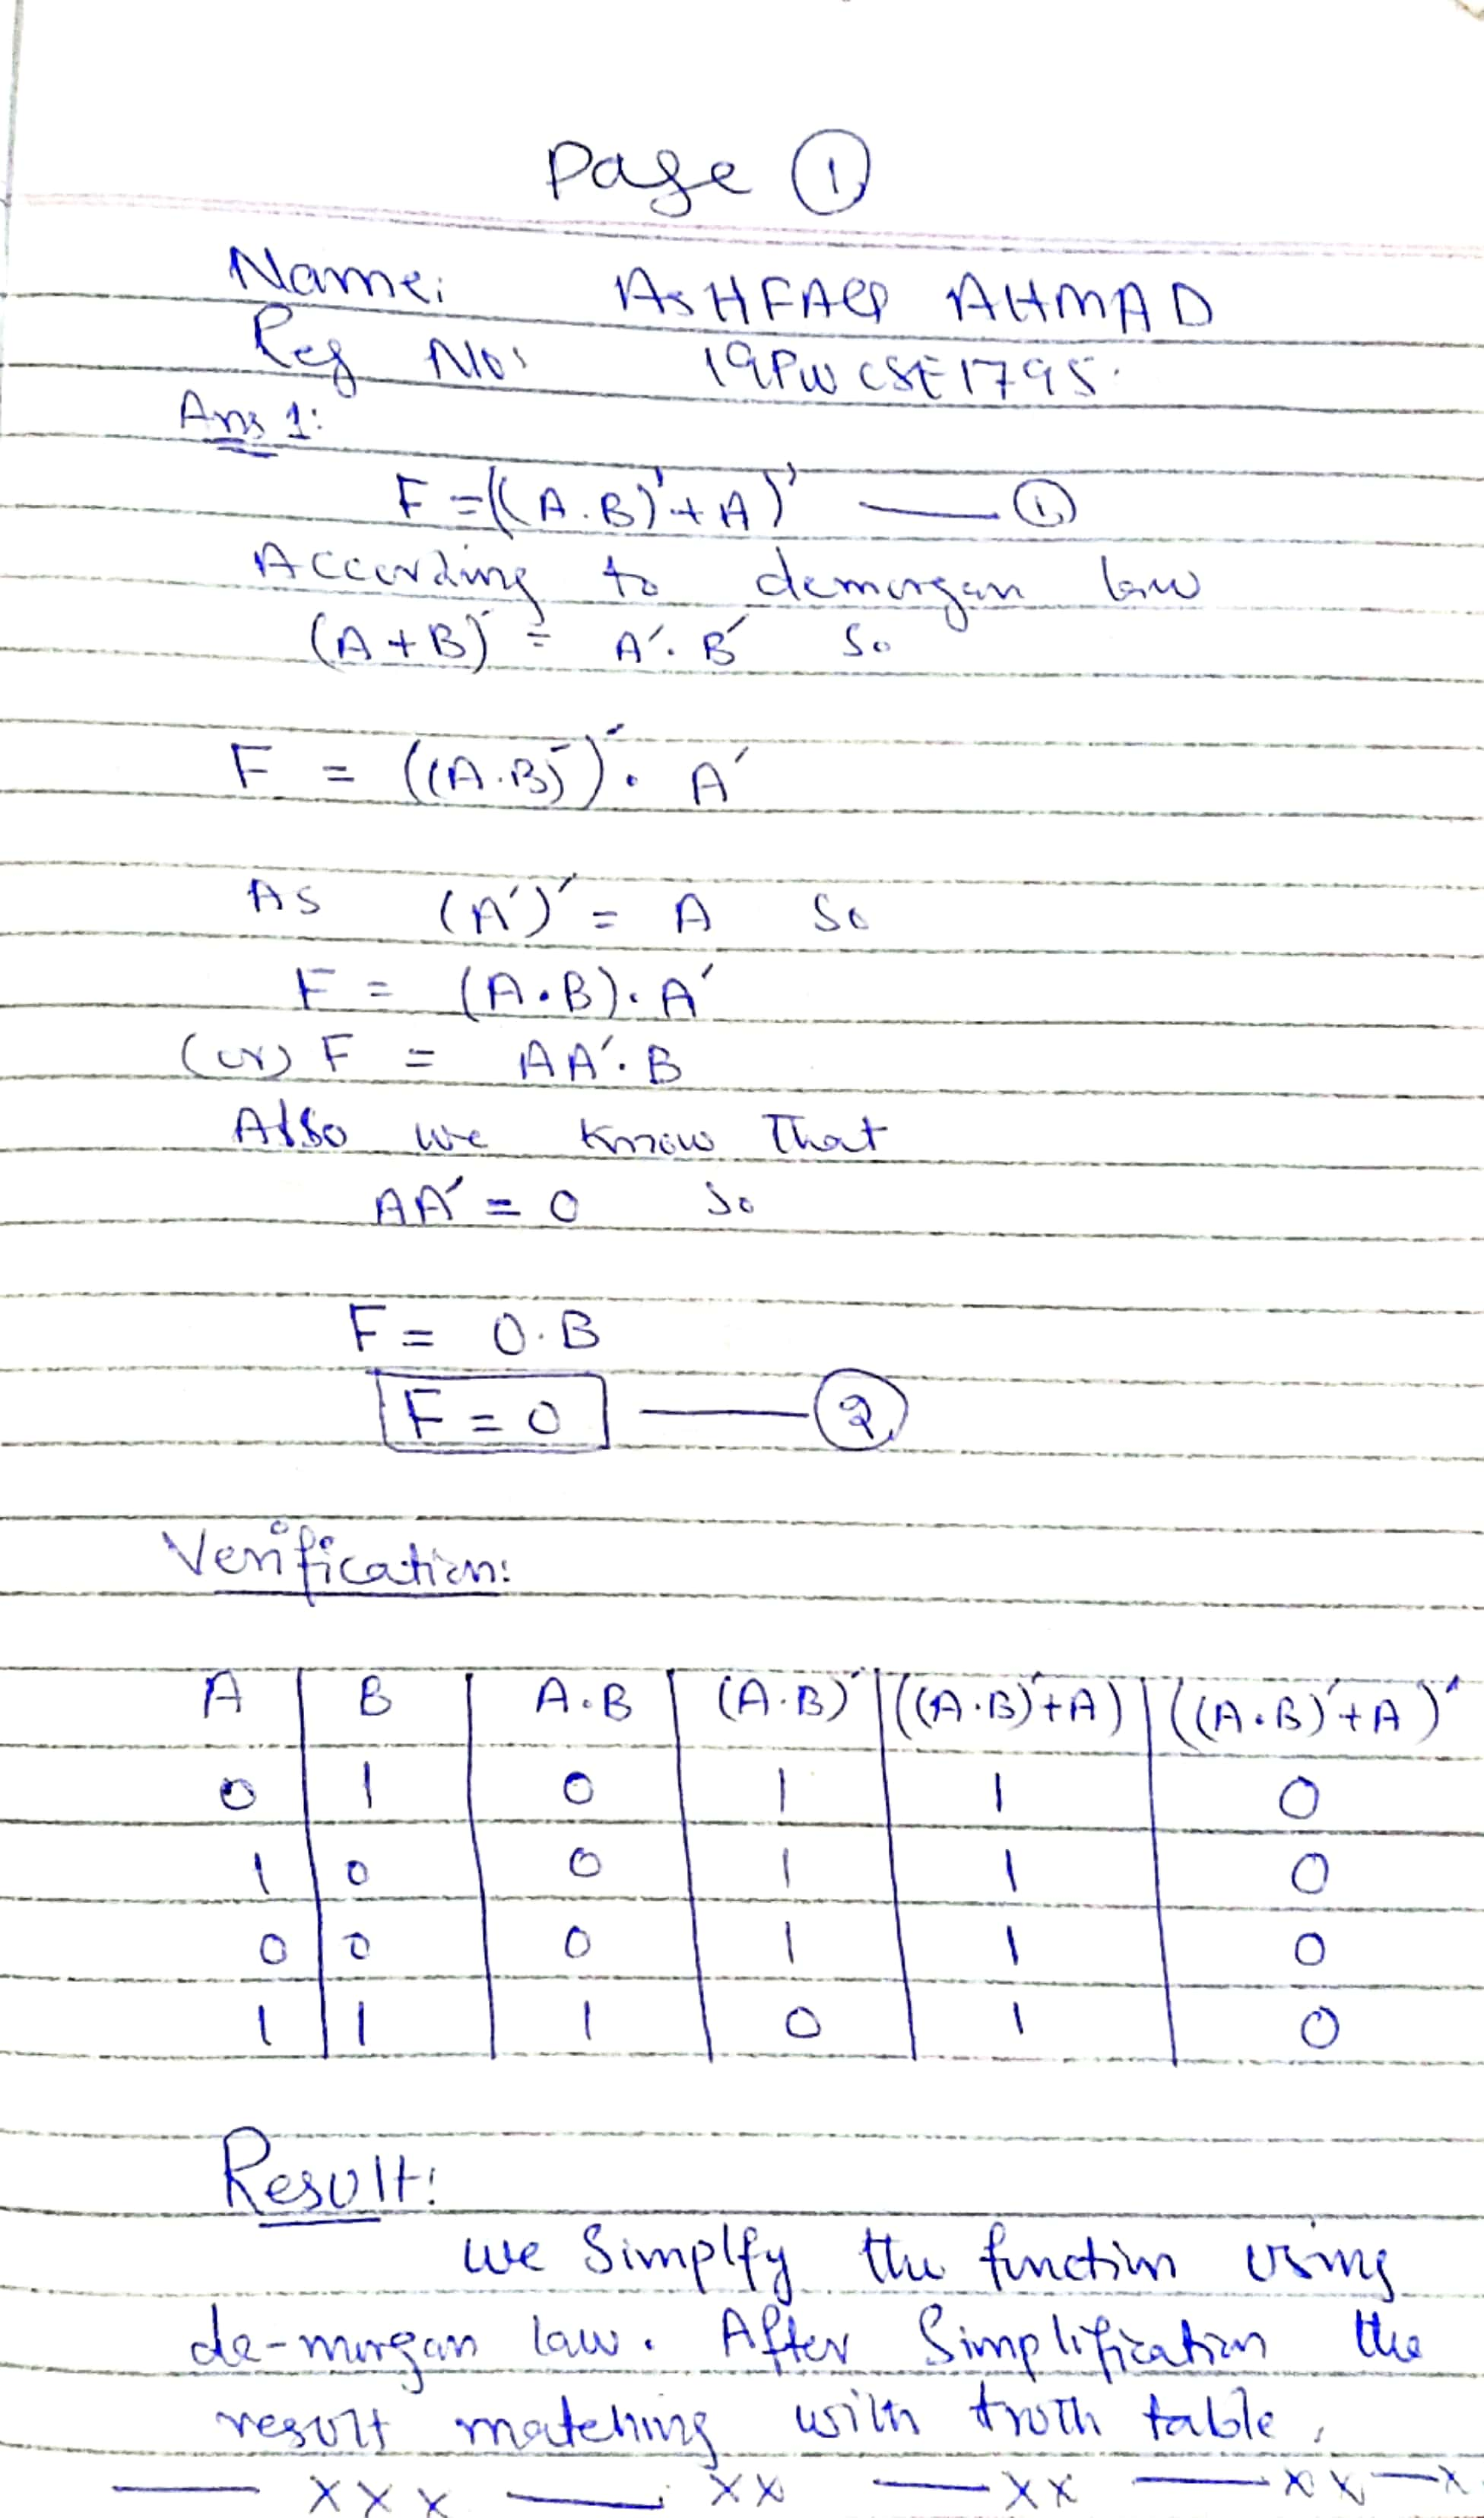 Page ①
Name: ASHFAQ AHMAD
Reg No: 19PWCSE1795.
Ans 1:
F = ((A.B)'+A)' — ①
According to demorgan law
(A+B)' = A'.B' So
F = ((A.B)')'. A'
As (A')' = A So
F = (A.B).A'
(or) F = AA'.B
Also we know that
AA' = 0 So
F = 0.B
F = 0 — ②
Verification:
A | B | A.B | (A.B)' | ((A.B)'+A) | ((A.B)'+A)'
0 | 1 | 0 | 1 | 1 | 0
1 | 0 | 0 | 1 | 1 | 0
0 | 0 | 0 | 1 | 1 | 0
1 | 1 | 1 | 0 | 1 | 0
Result:
we Simplfy the function using
de-morgan law. After Simplification the
result matching with truth table.
— XXX — XX — XX — XX — X